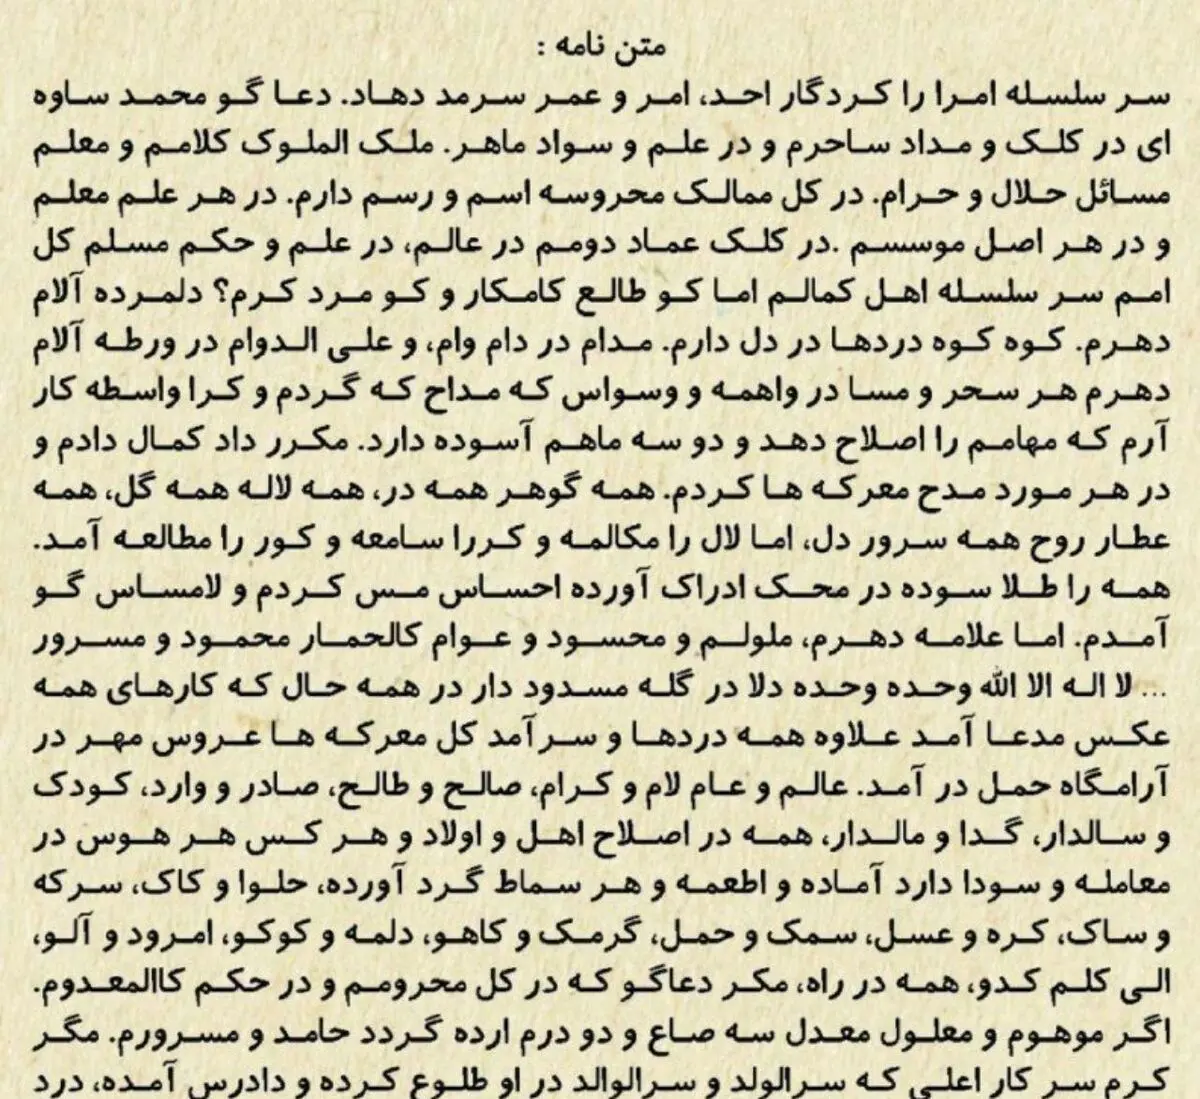 متن نامه :
سر سلسله امرا را کردگار احد، امر و عمر سرمد دهاد. دعا گو محمد ساوه
ای در کلک و مداد ساحرم و در علم و سواد ماهر. ملک الملوک کلامم و معلم
مسائل حلال و حرام. در کل ممالک محروسه اسم و رسم دارم. در هر علم معلم
و در هر اصل موسسم .در کلک عماد دومم در عالم، در علم و حکم مسلم کل
امم سر سلسله اهل کمالم اما کو طالع کامکار و کو مرد کرم؟ دلمرده آلام
دهرم. کوه کوه دردها در دل دارم. مدام در دام وام، و علی الدوام در ورطه آلام
دهرم هر سحر و مسا در واهمه و وسواس که مداح که گردم و کرا واسطه کار
آرم که مهامم را اصلاح دهد و دو سه ماهم آسوده دارد. مکرر داد کمال دادم و
در هر مورد مدح معرکه ها کردم. همه گوهر همه در، همه لاله همه گل، همه
عطار روح همه سرور دل، اما لال را مکالمه و کررا سامعه و کور را مطالعه آمد.
همه را طلا سوده در محک ادراک آورده احساس مس کردم و لامساس گو
آمدم. اما علامه دهرم، ملولم و محسود و عوام کالحمار محمود و مسرور
... لا اله الا الله وحده وحده دلا در گله مسدود دار در همه حال که کارهای همه
عکس مدعا آمد علاوه همه دردها و سرآمد کل معرکه ها عروس مهر در
آرامگاه حمل در آمد. عالم و عام لام و کرام، صالح و طالح، صادر و وارد، کودک
و سالدار، گدا و مالدار، همه در اصلاح اهل و اولاد و هر کس هر هوس در
معامله و سودا دارد آماده و اطعمه و هر سماط گرد آورده، حلوا و کاک، سرکه
و ساک، کره و عسل، سمک و حمل، گرمک و کاهو، دلمه و کوکو، امرود و آلو،
الی کلم کدو، همه در راه، مکر دعاگو که در کل محرومم و در حکم کاالمعدوم.
اگر موهوم و معلول معدل سه صاع و دو درم ارده گردد حامد و مسرورم. مگر
کرم سر کار اعلی که سرالولد و سرالوالد در او طلوع کرده و دادرس آمده، درد